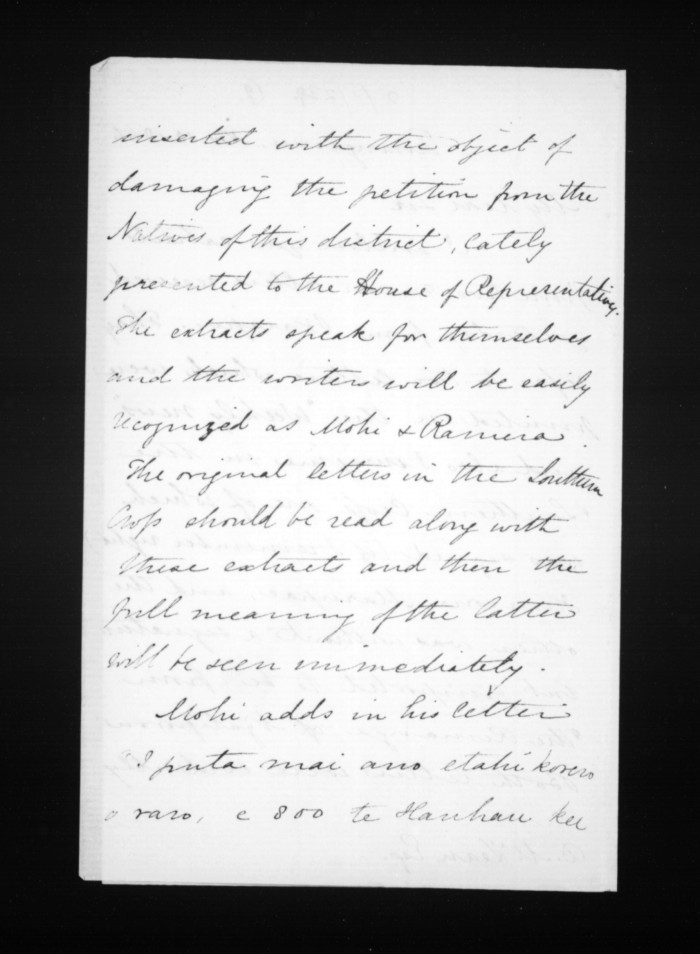 inserted with the object of
damaging the petition from the
Natives of this district, lately
presented to the House of Representatives.
The extracts speak for themselves
and the writers will be easily
recognized as Mohi & Rameira.
The original letters in the Southern
Cross should be read along with
these extracts and then the
full meaning of the latter
will be seen immediately.
Mohi adds in his letter
"I puta mai ano etahi korero
o raro, e 800 te Hauhau kei